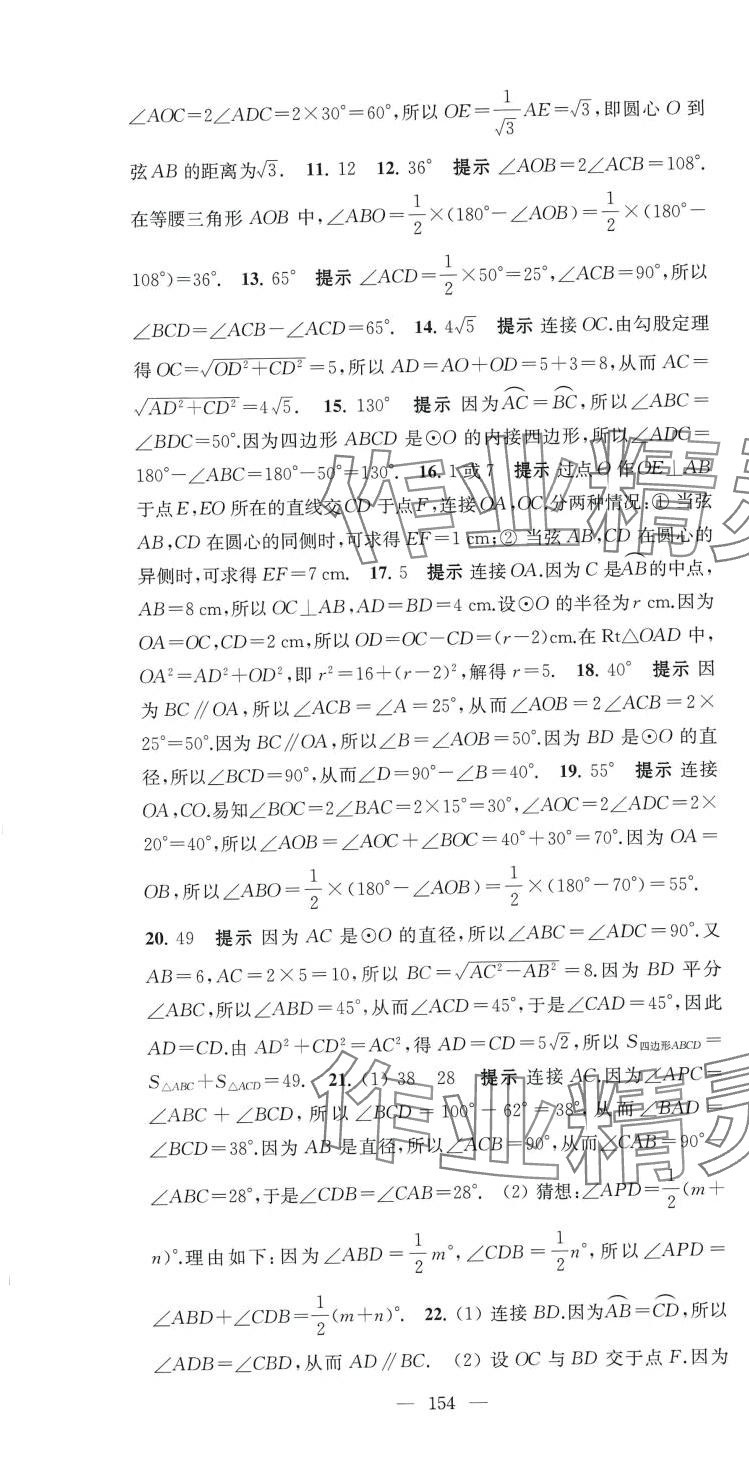 ∠AOC=2∠ADC=2×30°=60°,所以 OE=1/√3 AE=√3,即圆心 O 到
弦 AB 的距离为√3. 11. 12 12. 36° 提示 ∠AOB=2∠ACB=108°.
在等腰三角形 AOB 中,∠ABO=1/2×(180°-∠AOB)=1/2×(180°-
108°)=36°. 13. 65° 提示 ∠ACD=1/2×50°=25°,∠ACB=90°,所以
∠BCD=∠ACB-∠ACD=65°. 14. 4√5 提示 连接 OC.由勾股定理
得 OC=√(OD²+CD²)=5,所以 AD=AO+OD=5+3=8,从而 AC=
√(AD²+CD²)=4√5. 15. 130° 提示 因为⌒AC=⌒BC,所以∠ABC=
∠BDC=50°.因为四边形 ABCD 是⊙O 的内接四边形,所以∠ADC=
180°-∠ABC=180°-50°=130°. 16. 1 或 7 提示 过点 O 作 OE⊥AB
于点 E,EO 所在的直线交 CD 于点 F,连接 OA,OC.分两种情况:① 当弦
AB,CD 在圆心的同侧时,可求得 EF=1 cm;② 当弦 AB,CD 在圆心的
异侧时,可求得 EF=7 cm. 17. 5 提示 连接 OA.因为 C 是⌒AB的中点,
AB=8 cm,所以 OC⊥AB,AD=BD=4 cm.设⊙O 的半径为 r cm.因为
OA=OC,CD=2 cm,所以 OD=OC-CD=(r-2)cm.在 Rt△OAD 中,
OA²=AD²+OD²,即 r²=16+(r-2)²,解得 r=5. 18. 40° 提示 因
为 BC∥OA,所以∠ACB=∠A=25°,从而∠AOB=2∠ACB=2×
25°=50°.因为 BC∥OA,所以∠B=∠AOB=50°.因为 BD 是⊙O 的直
径,所以∠BCD=90°,从而∠D=90°-∠B=40°. 19. 55° 提示 连接
OA,CO.易知∠BOC=2∠BAC=2×15°=30°,∠AOC=2∠ADC=2×
20°=40°,所以∠AOB=∠AOC+∠BOC=40°+30°=70°.因为 OA=
OB,所以∠ABO=1/2×(180°-∠AOB)=1/2×(180°-70°)=55°.
20. 49 提示 因为 AC 是⊙O 的直径,所以∠ABC=∠ADC=90°.又
AB=6,AC=2×5=10,所以 BC=√(AC²-AB²)=8.因为 BD 平分
∠ABC,所以∠ABD=45°,从而∠ACD=45°,于是∠CAD=45°,因此
AD=CD.由 AD²+CD²=AC²,得 AD=CD=5√2,所以 S四边形ABCD=
S△ABC+S△ACD=49. 21. (1) 38 28 提示 连接 AC.因为∠APC=
∠ABC+∠BCD,所以∠BCD=100°-62°=38°,从而∠BAD=
∠BCD=38°.因为 AB 是直径,所以∠ACB=90°,从而∠CAB=90°-
∠ABC=28°,于是∠CDB=∠CAB=28°. (2) 猜想:∠APD=1/2(m+
n)°.理由如下:因为∠ABD=1/2m°,∠CDB=1/2n°,所以∠APD=
∠ABD+∠CDB=1/2(m+n)°. 22. (1) 连接 BD.因为⌒AB=⌒CD,所以
∠ADB=∠CBD,从而 AD∥BC. (2) 设 OC 与 BD 交于点 F.因为
— 154 —
作业精灵
作业精灵